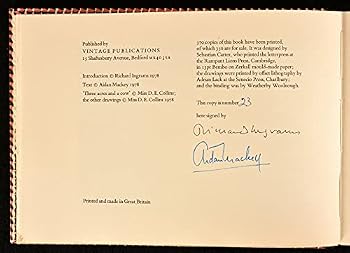 Published by
VINTAGE PUBLICATIONS
15 Shaftesbury Avenue, Bedford MK40 3SA
Introduction © Richard Ingrams 1978
Text © Aidan Mackey 1978
'Three acres and a cow' © Miss D. E. Collins;
the other drawings © Miss D. E. Collins 1978
Printed and made in Great Britain
370 copies of this book have been printed,
of which 350 are for sale. It was designed by
Sebastian Carter, who printed the letterpress at
the Rampant Lions Press, Cambridge,
in 13pt Bembo on Zerkall mould-made paper;
the drawings were printed by offset lithography by
Adrian Lack at the Senecio Press, Charlbury;
and the binding was by Weatherby Woolnough.
This copy is number 23
here signed by
Richard Ingrams
Aidan Mackey